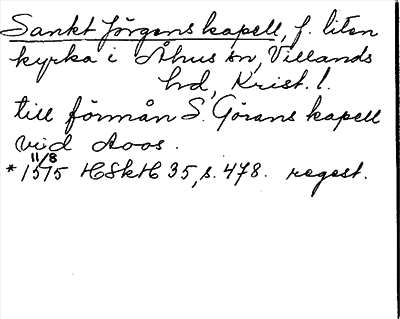 Sankt Jörgens kapell, f. liten
kyrka i Åhus sn, Villands
hd, Krist. l.
till förmån S. Görans kapell
vid Aoos.
11/8
*1515 HSkH 35, s. 478. regest.